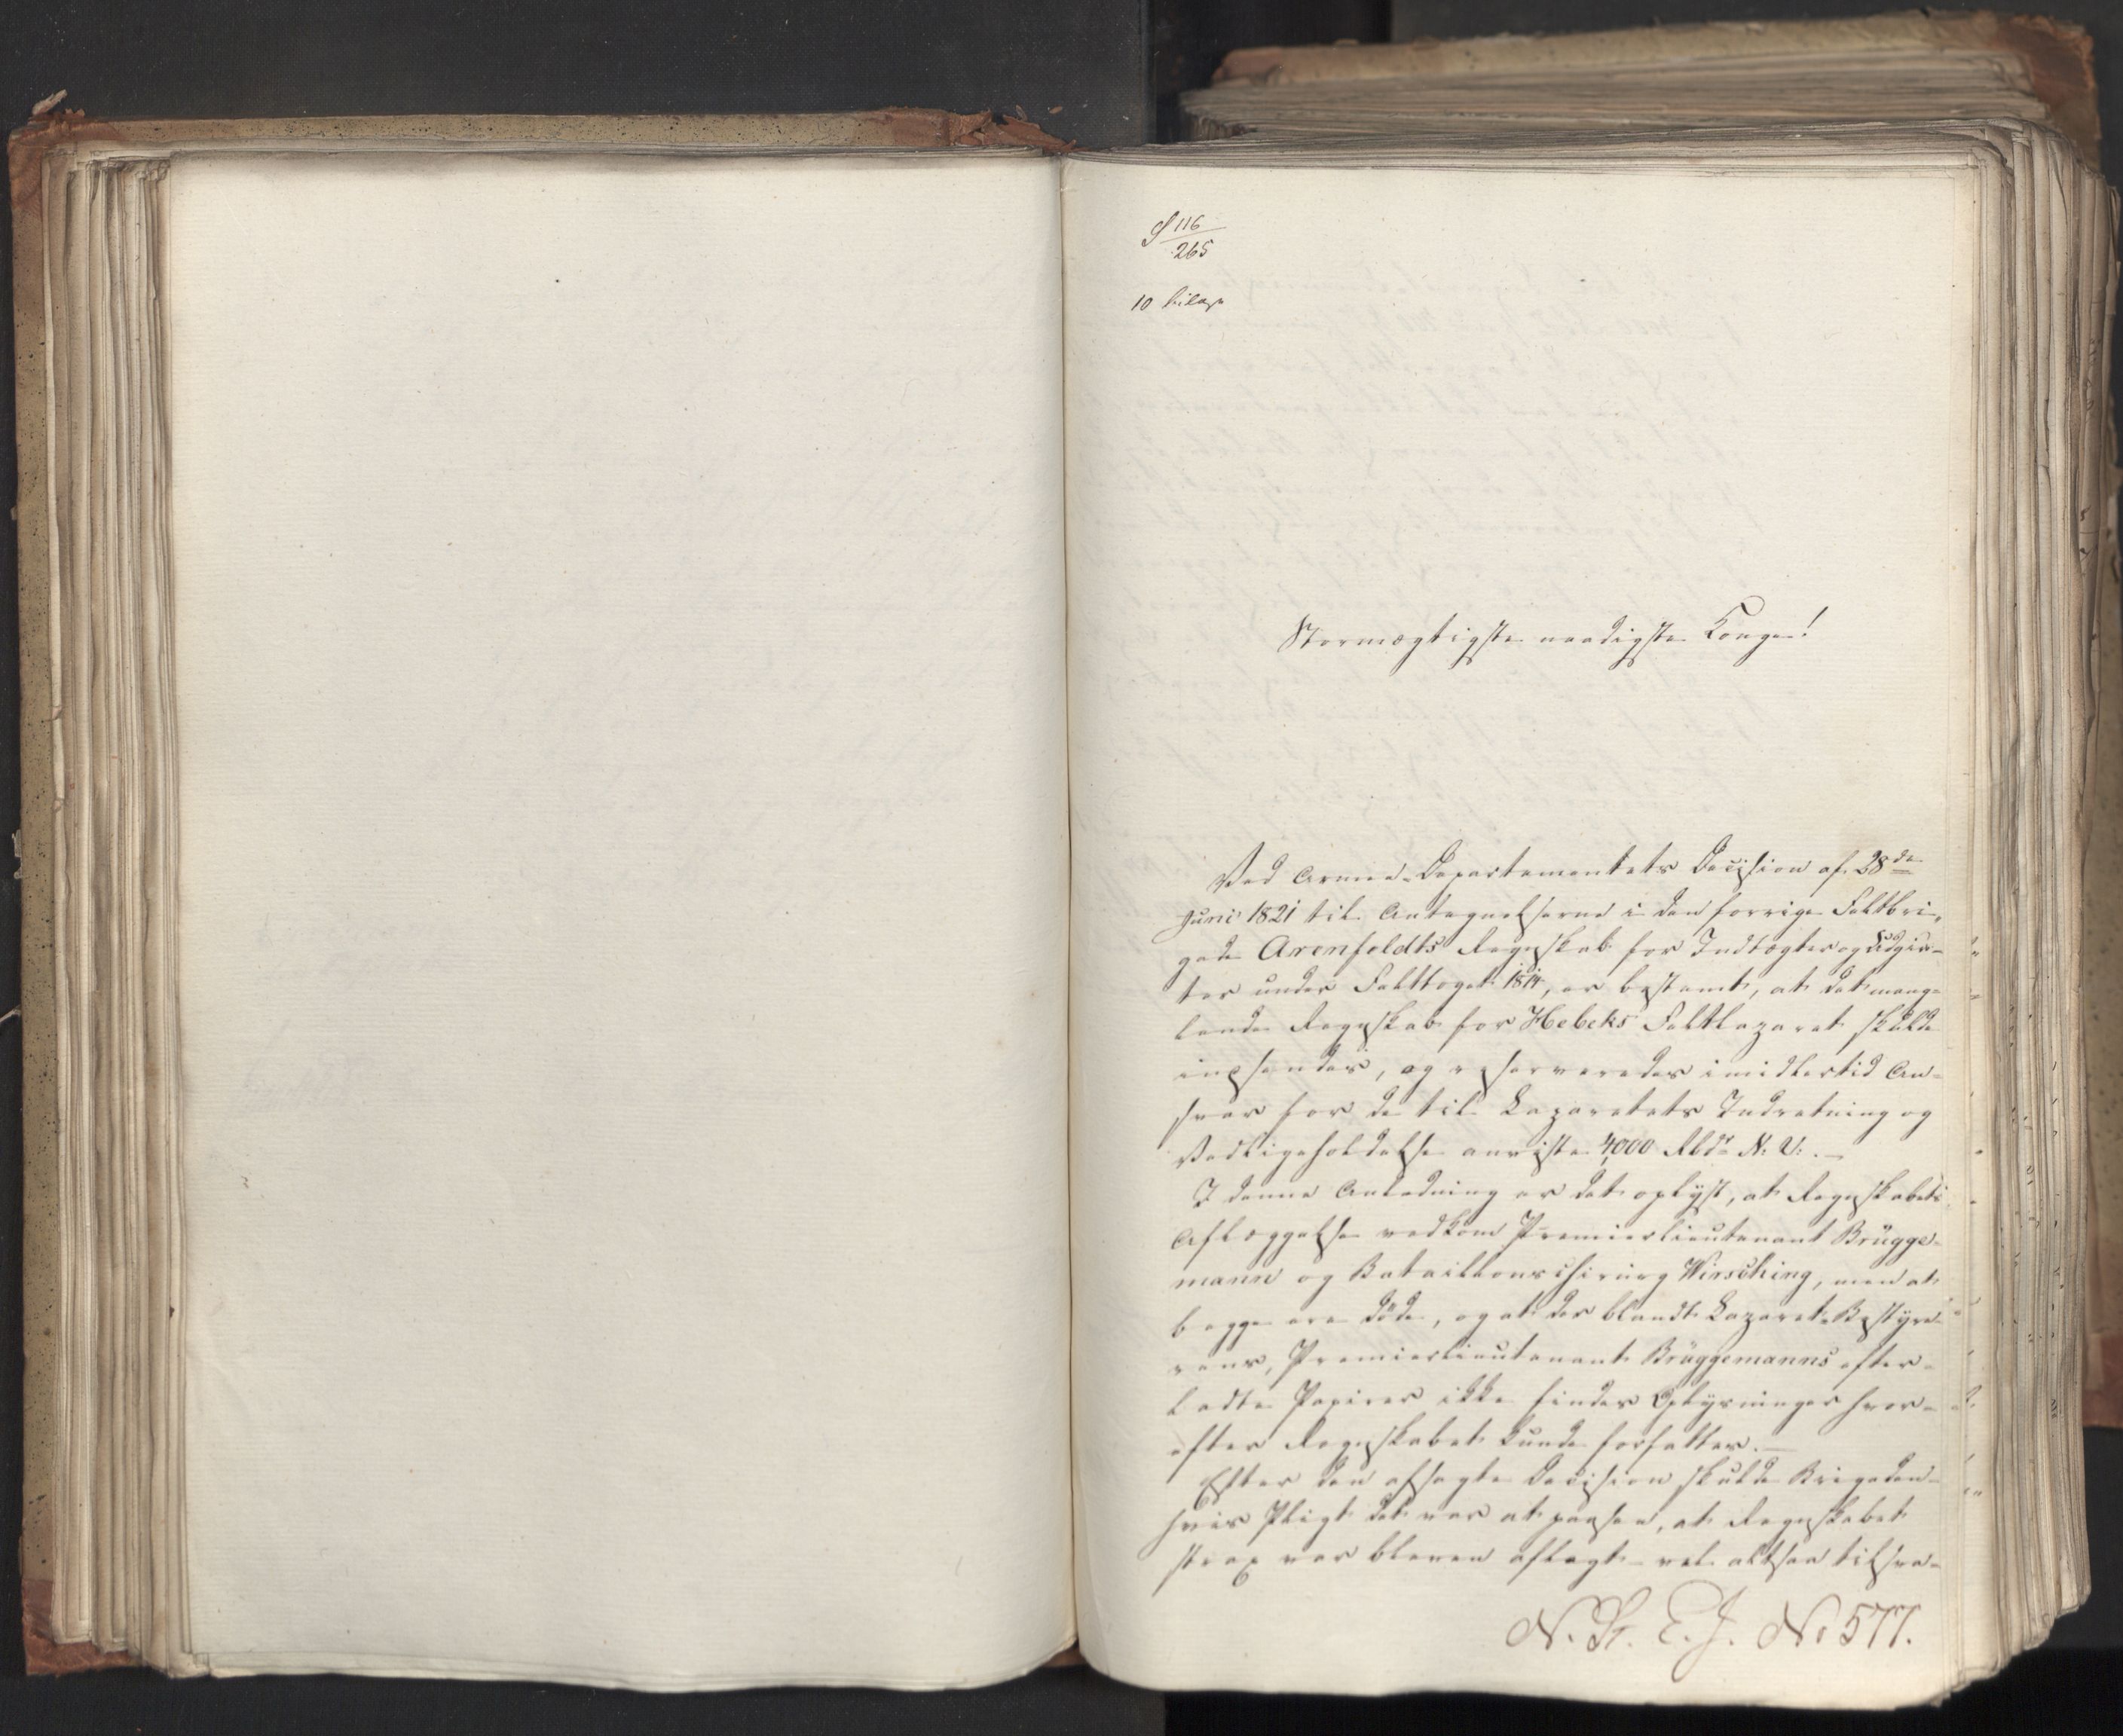 S 116/265
10 bilage
Stormægtigste naadigste Konge!
Ved Armee-Departementets Decision af 28de
Juni 1821 til Antegnelserne i den forrige Feltbri-
gade Arenfeldts Regnskab for Indtægter og Udgif-
ter under Felttoget 1814, er bestemt, at det mang-
lende Regnskab for Hebeks Feltlazaret skulde
indsendes, og reserveredes imidlertid An-
svar for de til Lazarethets Indretning og
Vedligeholdelse anviste 4000 Rbdr N. V. —
I denne Anledning er det oplyst, at Regnskabets
Aflæggelse vedkom Premierlieutenant Brügge-
mann og Bataillonschirurg Wirsching, men at
begge ere døde, og at der blandt Lazaret-Bestyre-
rens, Premierlieutenant Brüggemanns efter-
ladte Papirer ikke findes Oplysninger hvor-
efter Regnskabet kunde forfattes. —
Efter den afsagte Decision skulde Brigaden -
hvis Pligt det var at paasee, at Regnskabet
strax var bleven aflagt - vel altsaa tilsva-
N. St. E. J. No 577.